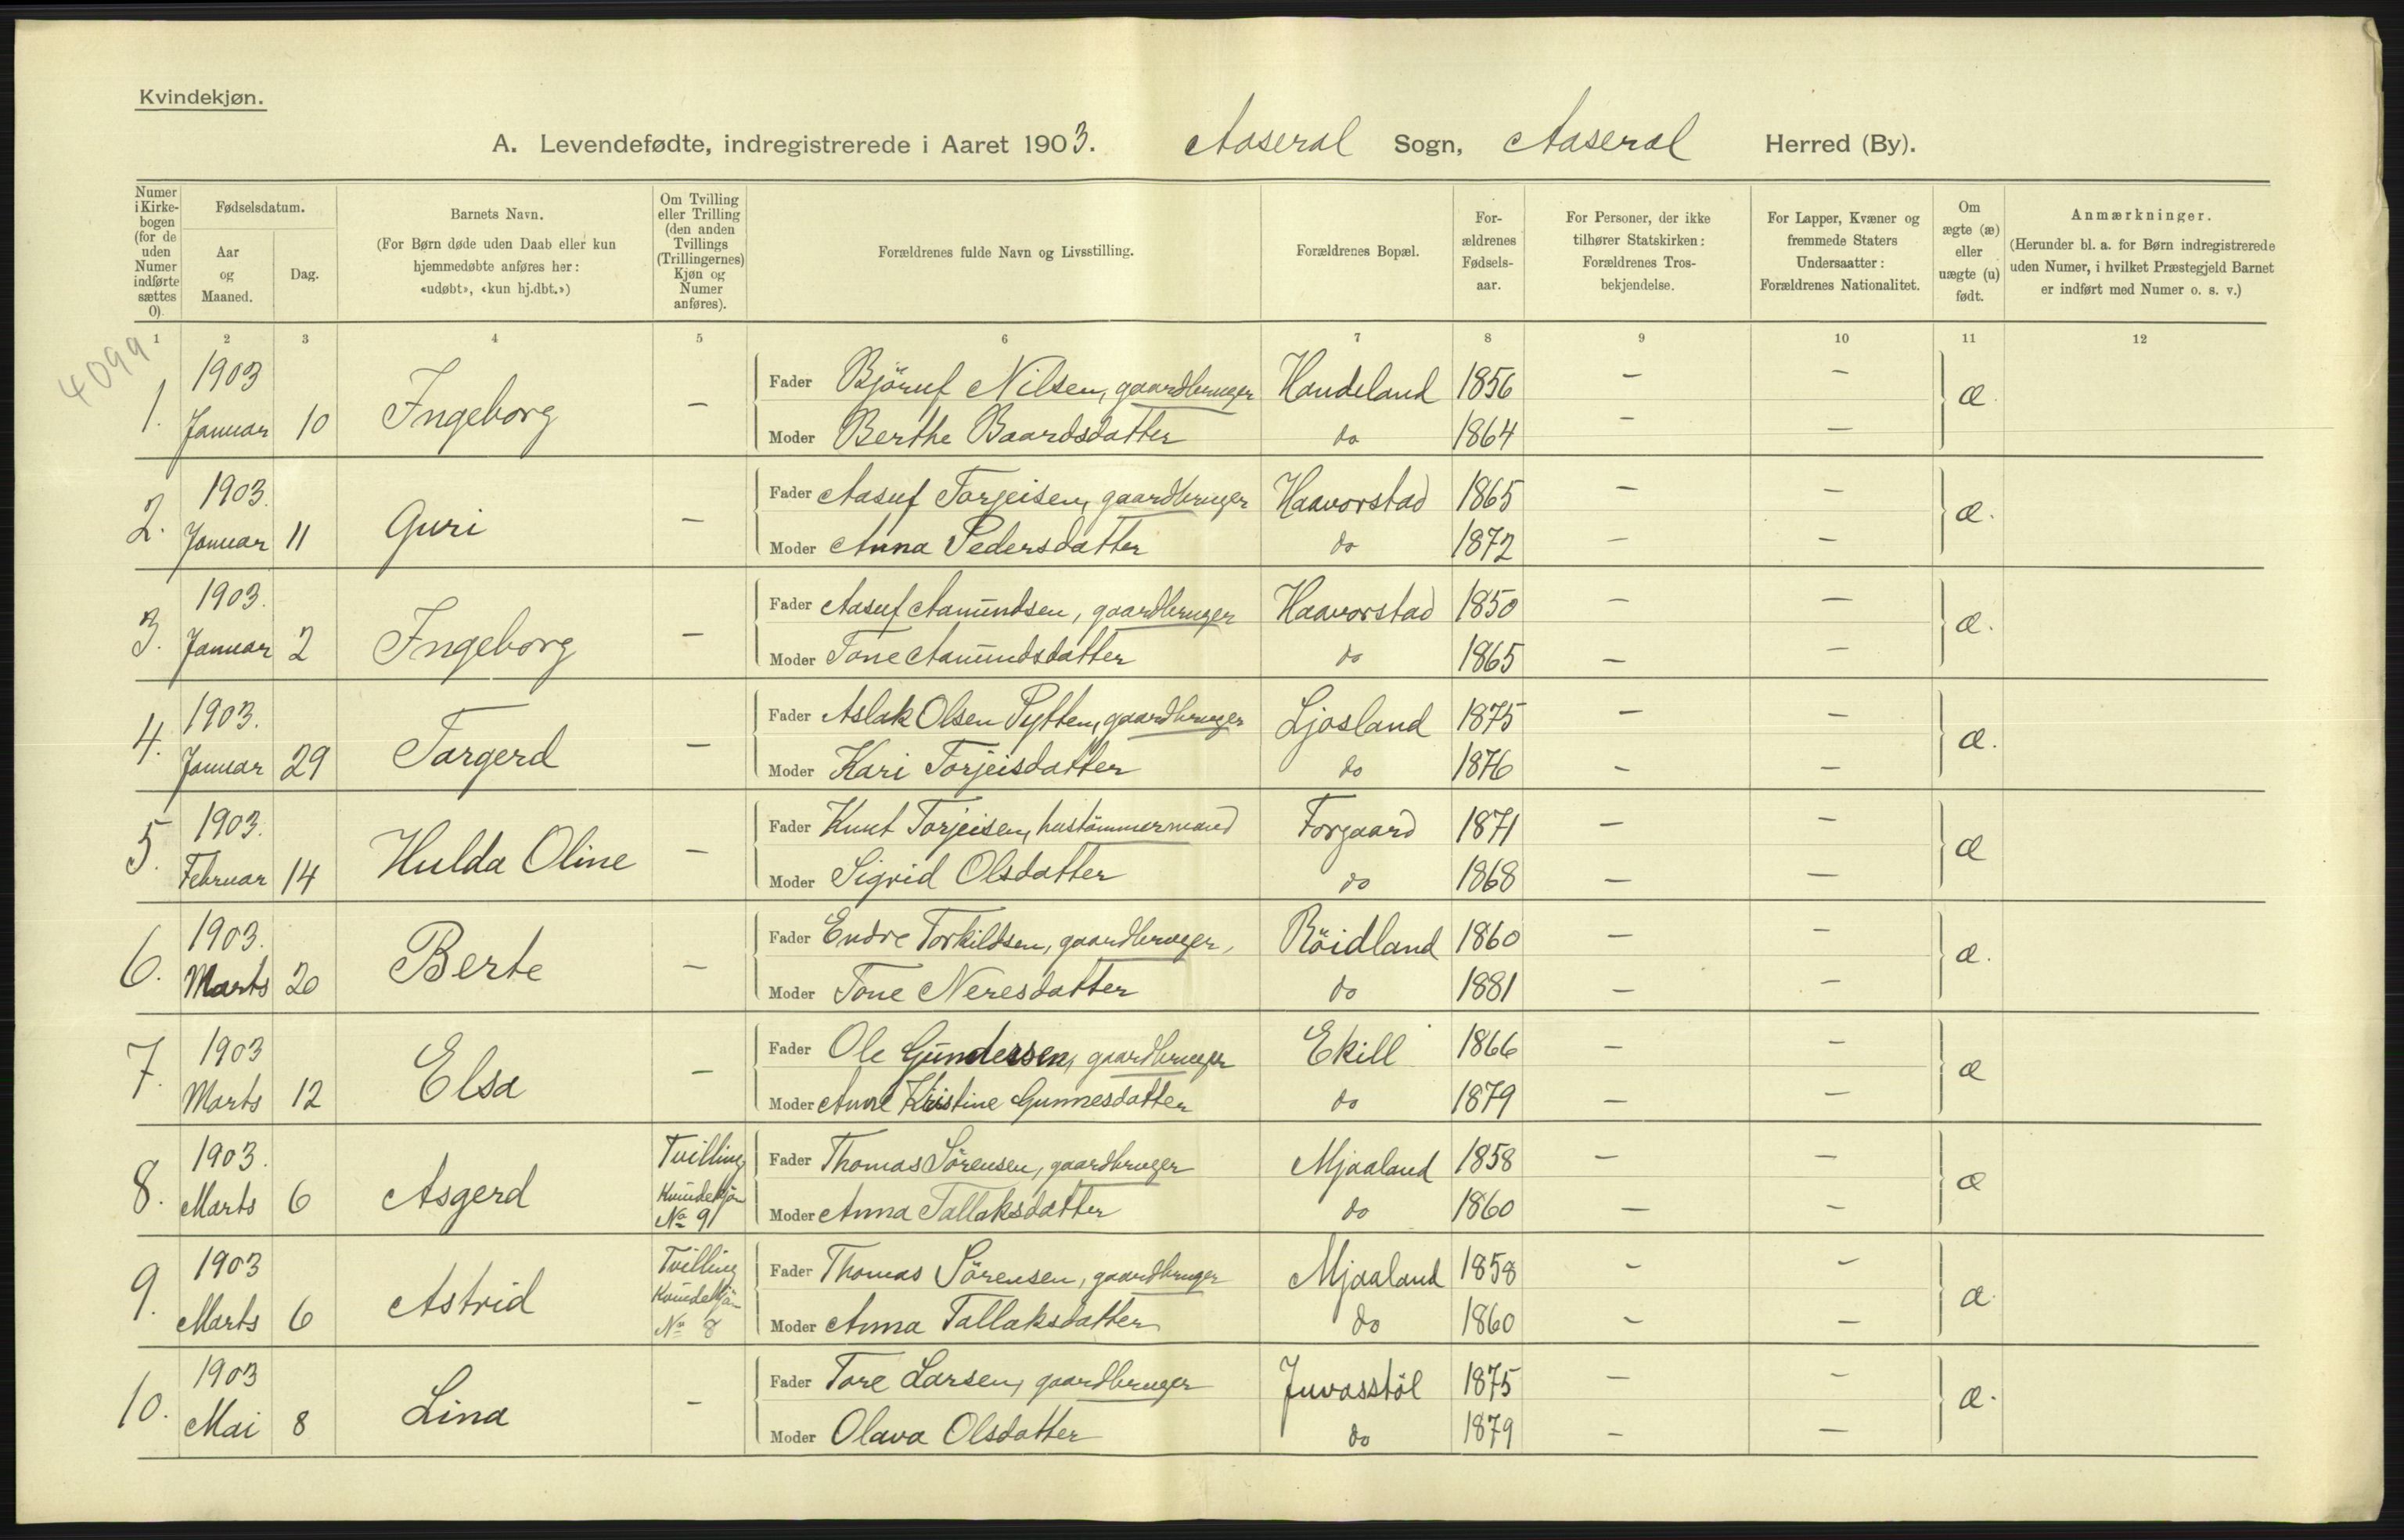 Kvindekjøn.
A. Levendefødte, indregistrerede i Aaret 1903. Aaseral Sogn, Aaseral Herred (By).
Numer i Kirke-bogen (for de uden Numer indførte sættes 0).
Fødselsdatum.
Aar og Maaned.
Dag.
Barnets Navn.
(For Børn døde uden Daab eller kun hjemmedøbte anføres her: «udøbt», «kun hj.dbt.»)
Om Tvilling eller Trilling (den anden Tvillings (Trillingernes) Kjøn og Numer anføres).
Forældrenes fulde Navn og Livsstilling.
Forældrenes Bopæl.
For-ældrenes Fødsels-aar.
For Personer, der ikke tilhører Statskirken: Forældrenes Tros-bekjendelse.
For Lapper, Kvæner og fremmede Staters Undersaatter: Forældrenes Nationalitet.
Om ægte (æ) eller uægte (u) født.
Anmærkninger.
(Herunder bl. a. for Børn indregistrerede uden Numer, i hvilket Præstegjeld Barnet er indført med Numer o. s. v.)
1 2 3 4 5 6 7 8 9 10 11 12
4099
1. 1903 Januar 10 Ingeborg - Fader Björuf Nilsen, gaardbruger Handeland 1856 - - æ
Moder Berthe Baardsdatter do 1864 - -
2. 1903. Januar 11 Guri - Fader Aasuf Torjeisen, gaardbruger Haavorstad 1865 - - æ.
Moder Anna Pedersdatter do 1872 - -
3. 1903. Januar 2 Ingeborg - Fader Aasuf Aamundsen, gaardbruger Haavorstad 1850 - - æ.
Moder Tone Aamundsdatter do 1865 - -
4. 1903. Januar 29 Targerd - Fader Aslak Olsen Pytten, gaardbruger Ljosland 1875 - - æ.
Moder Kari Torjeisdatter do 1876 - -
5. 1903. Februar 14 Hulda Oline - Fader Knut Torjeisen, hustömmermand Forgaard 1871 - - æ
Moder Sigrid Olsdatter do 1868 - -
6. 1903. Marts 20 Berte - Fader Endre Torkildsen, gaardbruger, Röidland 1860 - - æ.
Moder Tone Neresdatter do 1881 - -
7. 1903 Marts 12 Elsa - Fader Ole Gundersen, gaardbruger Ekill 1866 - - æ
Moder Anne Kristine Gunnesdatter do 1879 - -
8. 1903. Marts 6 Asgerd Tvilling Kvindekjön No 9 Fader Thomas Sörensen, gaardbruger Mjaaland 1858 - - æ
Moder Anna Tallaksdatter do 1860 - -
9. 1903 Marts 6 Astrid Tvilling Kvindekjön No 8 Fader Thomas Sörensen, gaardbruger Mjaaland 1858 - - æ
Moder Anna Tallaksdatter do 1860 - -
10. 1903 Mai 8 Lina - Fader Tore Larsen, gaardbruger Juvasstöl 1875 - - æ.
Moder Olava Olsdatter do 1879 - -